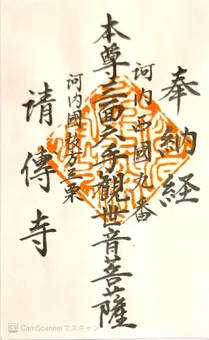 奉納経
河内西國九番
本尊三面六手觀世音菩薩
河内國枚方三栗
請傳寺
CamScannerでスキャン